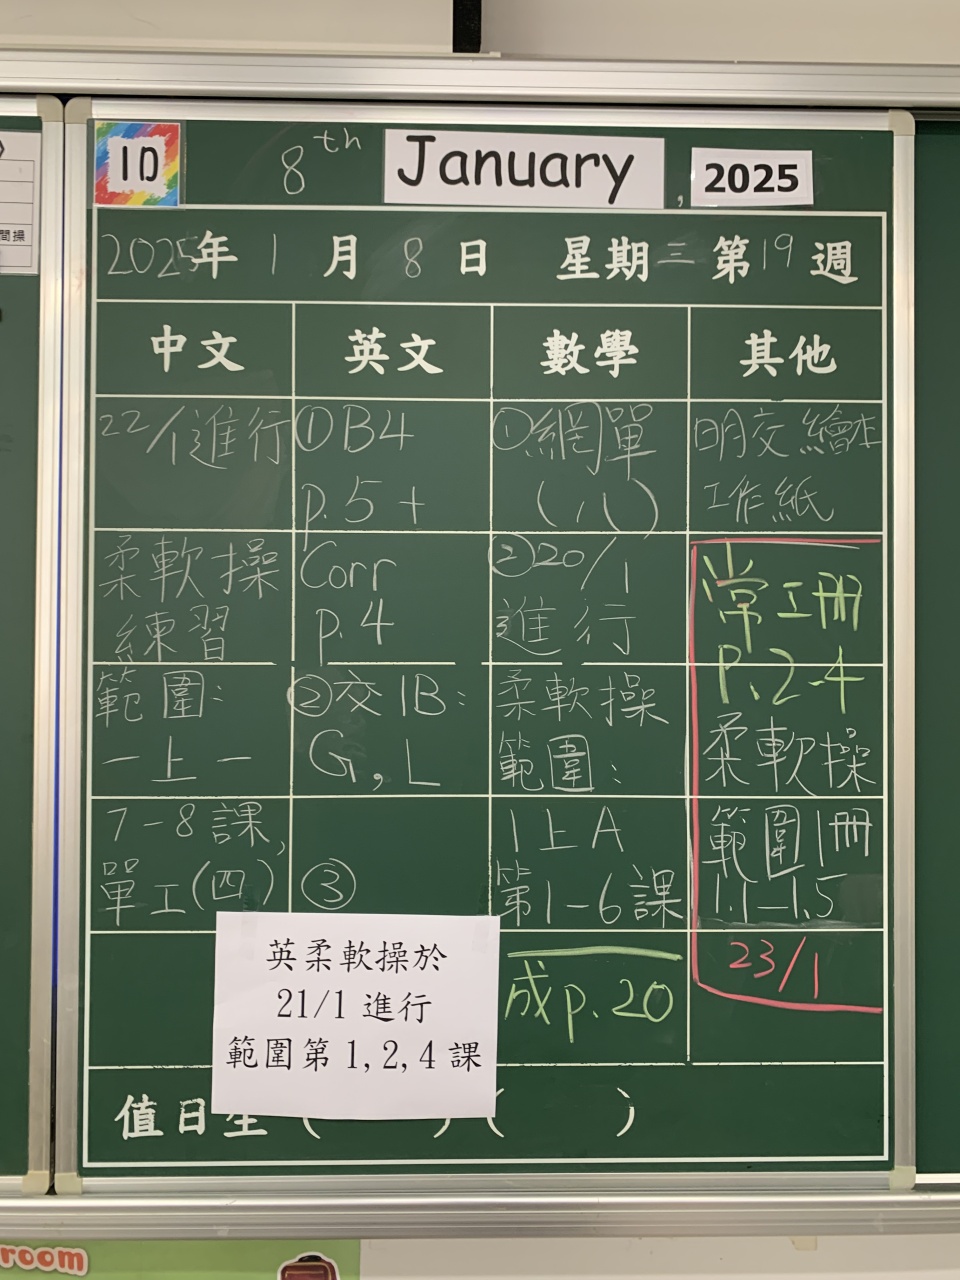 1D
8th January, 2025
2025年 1 月 8 日 星期三 第19週
中文
22/1進行
柔軟操
練習
範圍:
一上一
7-8課,
單工(四)
英文
①B4
p.5 +
Corr
p.4
②交1B:
G, L
③
英柔軟操於
21/1 進行
範圍第 1, 2, 4 課
數學
①網單
②20/1
進行
柔軟操
範圍:
1上A
第1-6課
成p.20
其他
明交繪本
工作紙
常工冊
P.2-4
柔軟操
範圍1冊
1.1-1.5
23/1
值日生 ( ) ( )
間操
room